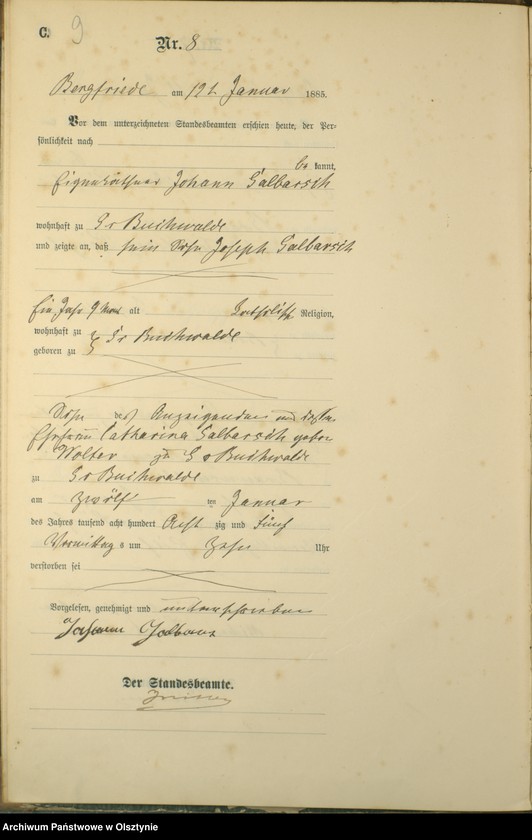 C. 9
Nr. 8
Bergfriede am 12t Januar 1885.
Vor dem unterzeichneten Standesbeamten erschien heute, der Per-
sönlichkeit nach
be kannt,
Eigenkäthner Johann Galbarsch
wohnhaft zu Gr Buchwalde
und zeigte an, daß sein Sohn Joseph Galbarsch
Ein Jahr 9 Mont alt Katholisch Religion,
wohnhaft zu
geboren zu } Gr Buchwalde
Sohn des Anzeigenden und dessen
Ehefrau Catharina Galbarsch gebor
Wolter zu Gr Buchwalde
zu Gr Buchwalde
am zwölf ten Januar
des Jahres tausend acht hundert Acht zig und fünf
Vormittag s um zehn Uhr
verstorben sei
Vorgelesen, genehmigt und unterschrieben
Johann
Der Standesbeamte.
Archiwum Państwowe w Olsztynie